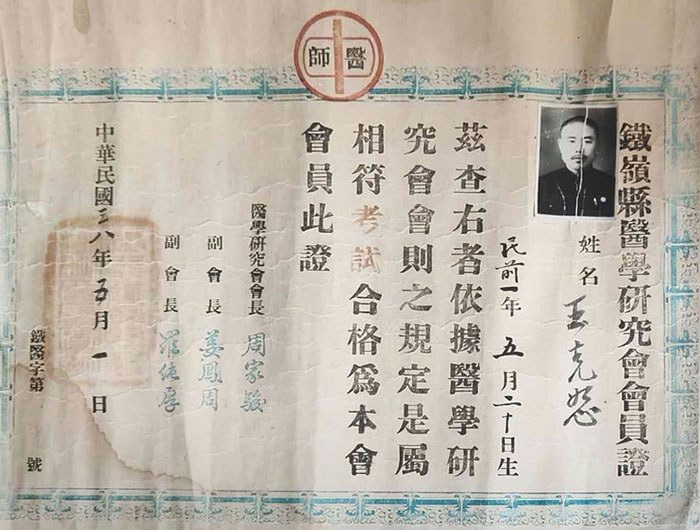 醫師
鐵嶺縣醫學研究會會員證
姓名 王克恕
民前一年五月二十日生
茲查右者依據醫學研
究會會則之規定是屬
相符考試合格爲本會
會員此證
醫學研究會會長 周家駿
副會長 姜鳳周
副會長 羅
中華民國三八年五月一日
鐵醫字第 號